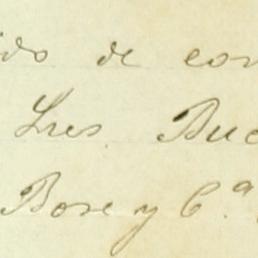 ido de con
Sres. Buc
Bose y Cª.